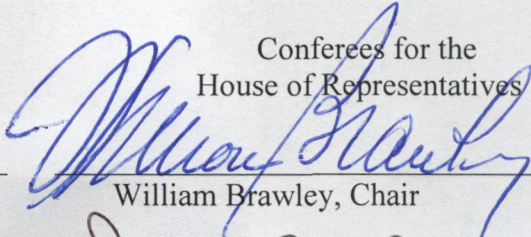 Conferees for the
House of Representatives
William Brawley
William Brawley, Chair